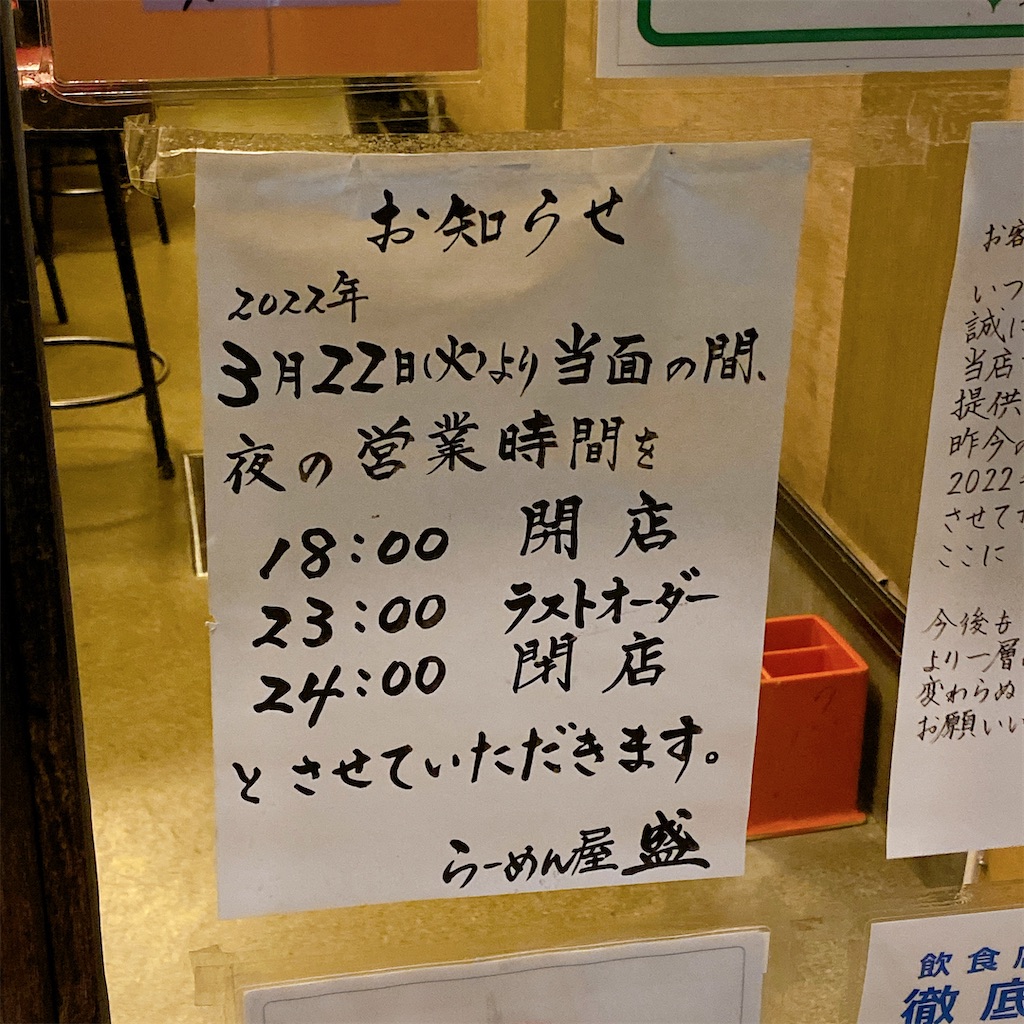 お知らせ
2022年
3月22日(火)より当面の間、
夜の営業時間を
18:00 開店
23:00 ラストオーダー
24:00 閉店
とさせていただきます。
らーめん屋 盛
お客
いつ
誠に
当店
提供
昨今の
2022年
させて
ここに
今後も
より一層
変わらぬ
お願いい
飲食店
徹底